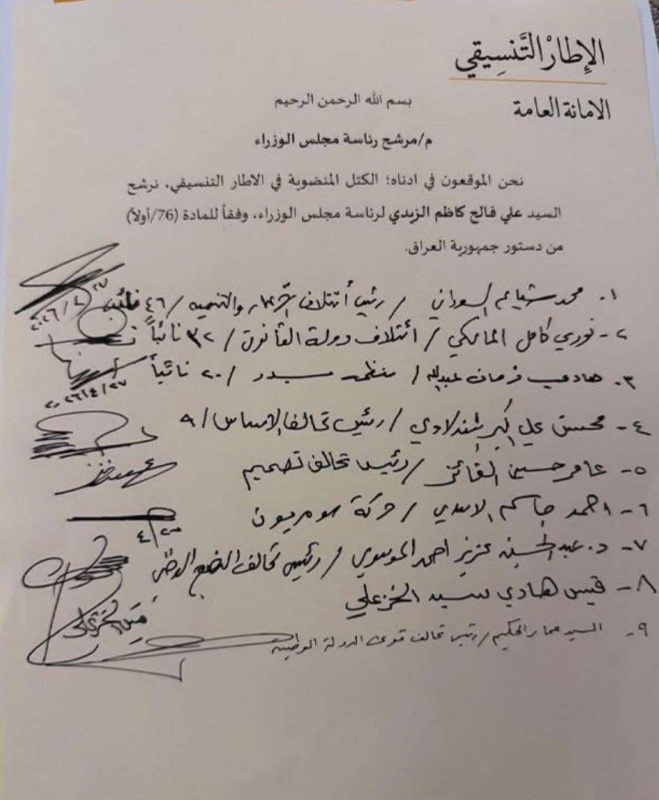 الإطار التَّنسِيقي
الامانة العامة
بسم الله الرحمن الرحيم
م/مرشح رئاسة مجلس الوزراء
نحن الموقعون في ادناه؛ الكتل المنضوية في الاطار التنسيقي، نرشح
السيد علي فالح كاظم الزيدي لرئاسة مجلس الوزراء، وفقاً للمادة (76/أولاً)
من دستور جمهورية العراق.
١- محمد شياع السوداني / رئيس أئتلاف الاعمار والتنمية / ٤٦ نائب
٢٠٢٦/٤/٢٧
٢- نوري كامل المالكي / أئتلاف دولة القانون / ٣٢ نائباً
٣- هادي فرحان عبدالله / منظمة بدر / ٢٠ نائباً
٢٠٢٦/٤/٢٧
٤- محسن علي اكبر / رئيس تحالف الاساس / ٩
٥- عامر حسين الفائز / رئيس تحالف تصميم
٦- احمد جاسم الاسدي / حركة سومريون
٧- د. عبدالحسين عزيز احمد الموسوي / رئيس تحالف النهج الوطني
٨- قيس هادي سيد الخزعلي
قيس الخزعلي
٩- السيد عمار الحكيم / رئيس تحالف قوى الدولة الوطنية